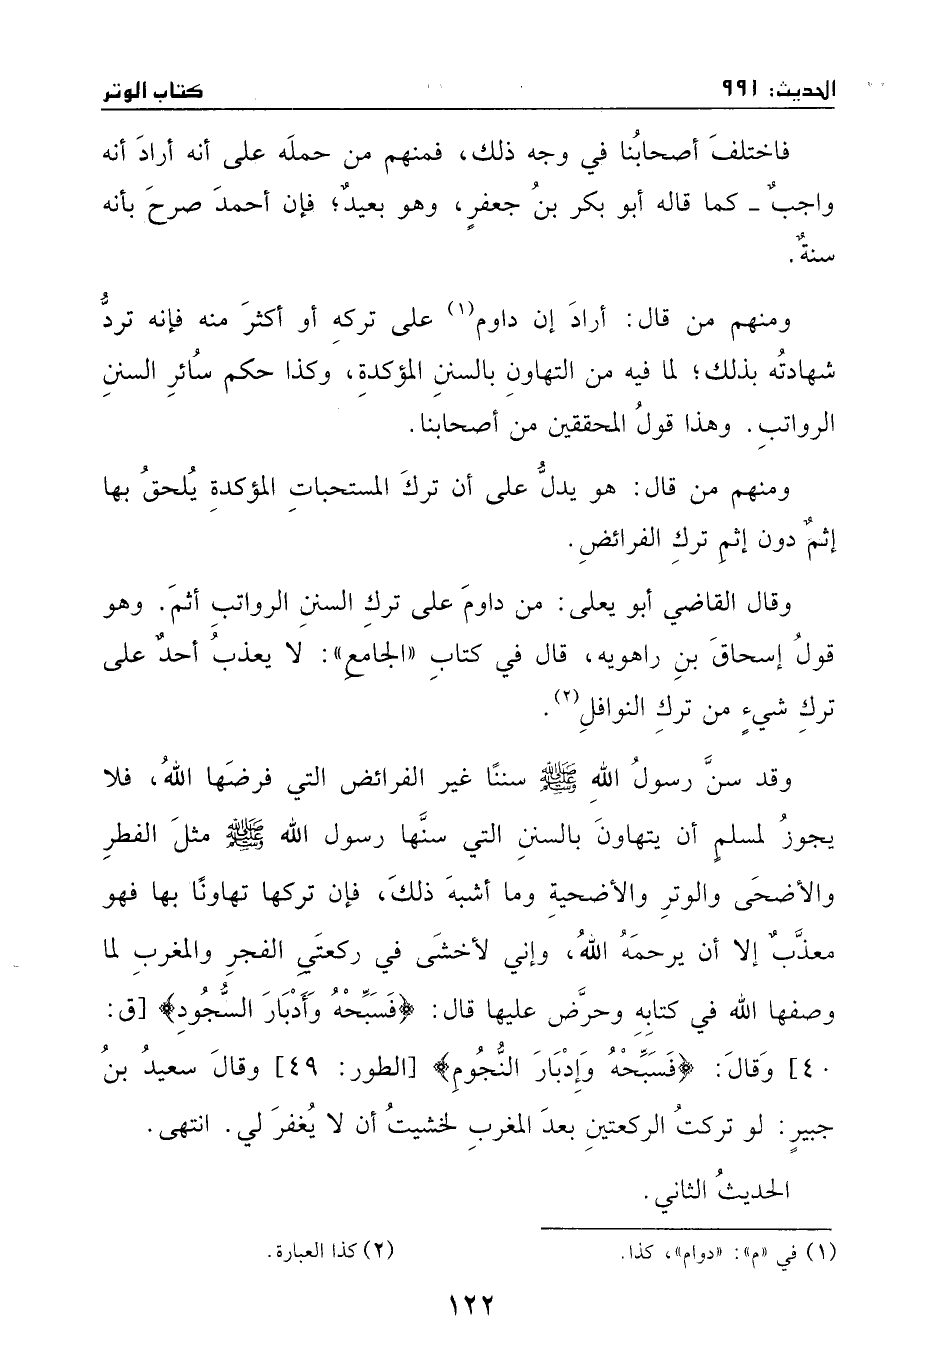 الحديث: ٩٩١ كتاب الوتر
فاختلفَ أصحابُنا في وجه ذلك، فمنهم من حملَه على أنه أرادَ أنه
واجبٌ ـ كما قاله أبو بكر بنُ جعفرٍ، وهو بعيدٌ؛ فإن أحمدَ صرحَ بأنه
سنةٌ.
ومنهم من قال: أرادَ إن داوم(١) على تركهِ أو أكثرَ منه فإنه تردُّ
شهادتُه بذلك؛ لما فيه من التهاونِ بالسننِ المؤكدةِ، وكذا حكم سائرِ السننِ
الرواتبِ. وهذا قولُ المحققين من أصحابنا.
ومنهم من قال: هو يدلُّ على أن تركَ المستحباتِ المؤكدةِ يُلحقُ بها
إثمٌ دون إثمِ تركِ الفرائضِ.
وقال القاضي أبو يعلى: من داومَ على تركِ السننِ الرواتبِ أثمَ. وهو
قولُ إسحاقَ بنِ راهويه، قال في كتابِ «الجامعِ»: لا يعذبُ أحدٌ على
تركِ شيءٍ من تركِ النوافلِ(٢).
وقد سنَّ رسولُ اللهِ ﷺ سننًا غير الفرائض التي فرضَها اللهُ، فلا
يجوزُ لمسلمٍ أن يتهاونَ بالسننِ التي سنَّها رسول الله ﷺ مثلَ الفطرِ
والأضحَى والوترِ والأضحيةِ وما أشبهَ ذلكَ، فإن تركها تهاونًا بها فهو
معذَّبٌ إلا أن يرحمَهُ اللهُ، وإني لأخشَى في ركعتَيِ الفجرِ والمغربِ لما
وصفها الله في كتابِهِ وحرَّض عليها قال: ﴿فَسَبِّحْهُ وَأَدْبَارَ السُّجُودِ﴾ [ق:
٤٠] وَقالَ: ﴿فَسَبِّحْهُ وَإِدْبَارَ النُّجُومِ﴾ [الطور: ٤٩] وقالَ سعيدُ بنُ
جبيرٍ: لو تركتُ الركعتينِ بعدَ المغربِ لخشيتُ أن لا يُغفرَ لي. انتهى.
الحديثُ الثاني.
(١) في «م»: «دوام»، كذا. (٢) كذا العبارة.
١٢٢